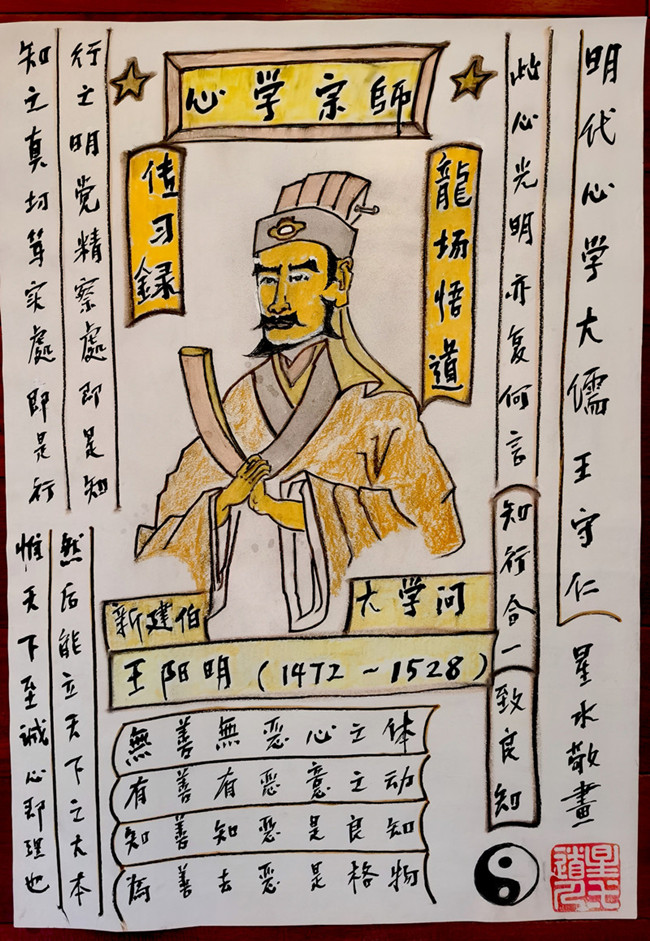 心学宗師
明代心学大儒王守仁
星水敬畫
此心光明亦复何言
知行合一
致良知
龍场悟道
传习録
行之明觉精察處即是知
知之真切笃实處即是行
然后能立天下之大本
惟天下至诚心即理也
新建伯
大学问
王阳明(1472~1528)
無善無恶心之体
有善有恶意之动
知善知恶是良知
為善去恶是格物